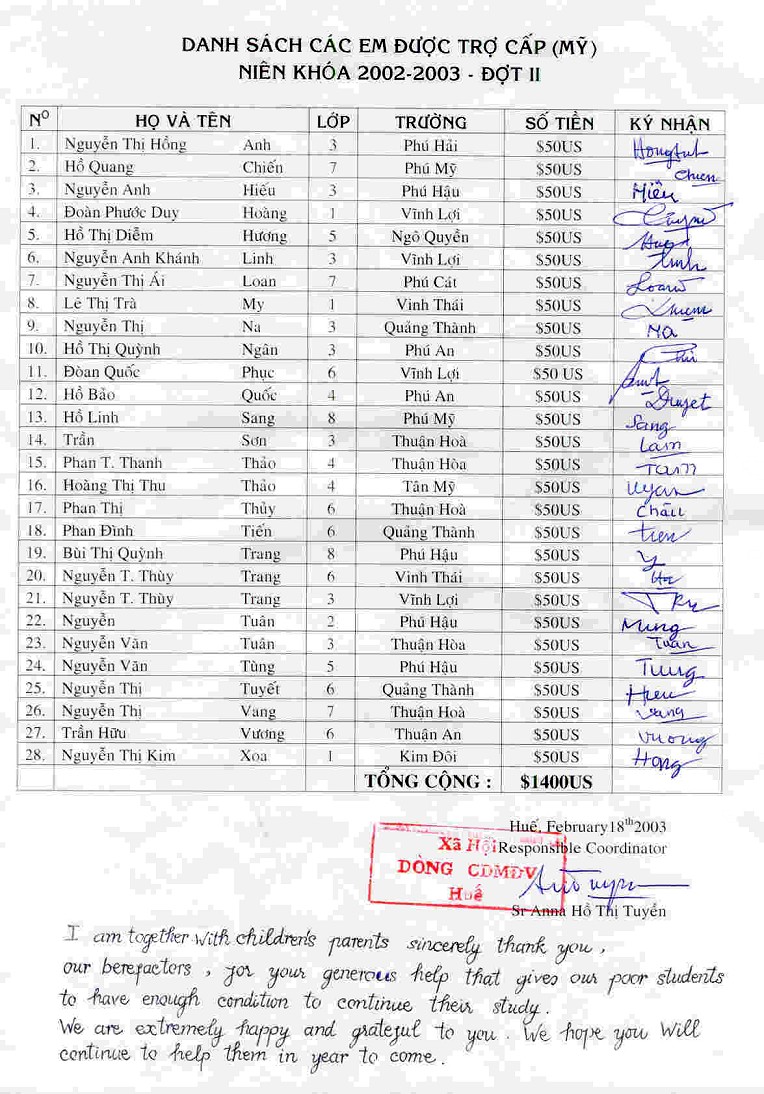 DANH SÁCH CÁC EM ĐƯỢC TRỢ CẤP (MỸ)
NIÊN KHÓA 2002-2003 - ĐỢT II
Nº HỌ VÀ TÊN LỚP TRƯỜNG SỐ TIỀN KÝ NHẬN
1. Nguyễn Thị Hồng Anh 3 Phú Hải $50US
2. Hồ Quang Chiến 7 Phú Mỹ $50US Chien
3. Nguyễn Anh Hiếu 3 Phú Hậu $50US Hiếu
4. Đoàn Phước Duy Hoàng 1 Vĩnh Lợi $50US
5. Hồ Thị Diễm Hương 5 Ngô Quyền $50US
6. Nguyễn Anh Khánh Linh 3 Vĩnh Lợi $50US Linh
7. Nguyễn Thị Ái Loan 7 Phú Cát $50US Loan
8. Lê Thị Trà My 1 Vinh Thái $50US
9. Nguyễn Thị Na 3 Quảng Thành $50US Na
10. Hồ Thị Quỳnh Ngân 3 Phú An $50US
11. Đòan Quốc Phục 6 Vĩnh Lợi $50 US
12. Hồ Bảo Quốc 4 Phú An $50US Duyet
13. Hồ Linh Sang 8 Phú Mỹ $50US Sang
14. Trần Sơn 3 Thuận Hoà $50US Lam
15. Phan T. Thanh Thảo 4 Thuận Hòa $50US Tam
16. Hoàng Thị Thu Thảo 4 Tân Mỹ $50US Uyan
17. Phan Thị Thủy 6 Thuận Hoà $50US Châu
18. Phan Đình Tiến 6 Quảng Thành $50US tien
19. Bùi Thị Quỳnh Trang 8 Phú Hậu $50US Y
20. Nguyễn T. Thùy Trang 6 Vinh Thái $50US Ha
21. Nguyễn T. Thùy Trang 3 Vĩnh Lợi $50US
22. Nguyễn Tuân 2 Phú Hậu $50US Minng
23. Nguyễn Văn Tuân 3 Thuận Hòa $50US Tuân
24. Nguyễn Văn Tùng 5 Phú Hậu $50US Tung
25. Nguyễn Thị Tuyết 6 Quảng Thành $50US Hieu
26. Nguyễn Thị Vang 7 Thuận Hoà $50US Vang
27. Trần Hữu Vương 6 Thuận An $50US Vuong
28. Nguyễn Thị Kim Xoa 1 Kim Đôi $50US Hong
TỔNG CỘNG : $1400US
Huế, February18th2003
Xã Hội Responsible Coordinator
DÒNG CDMĐV
Huế
Sr Anna Hồ Thị Tuyền
I am together with children's parents sincerely thank you,
our berefactors, for your generous help that gives our poor students
to have enough condition to continue their study.
We are extremely happy and grateful to you. We hope you will
continue to help them in year to come.